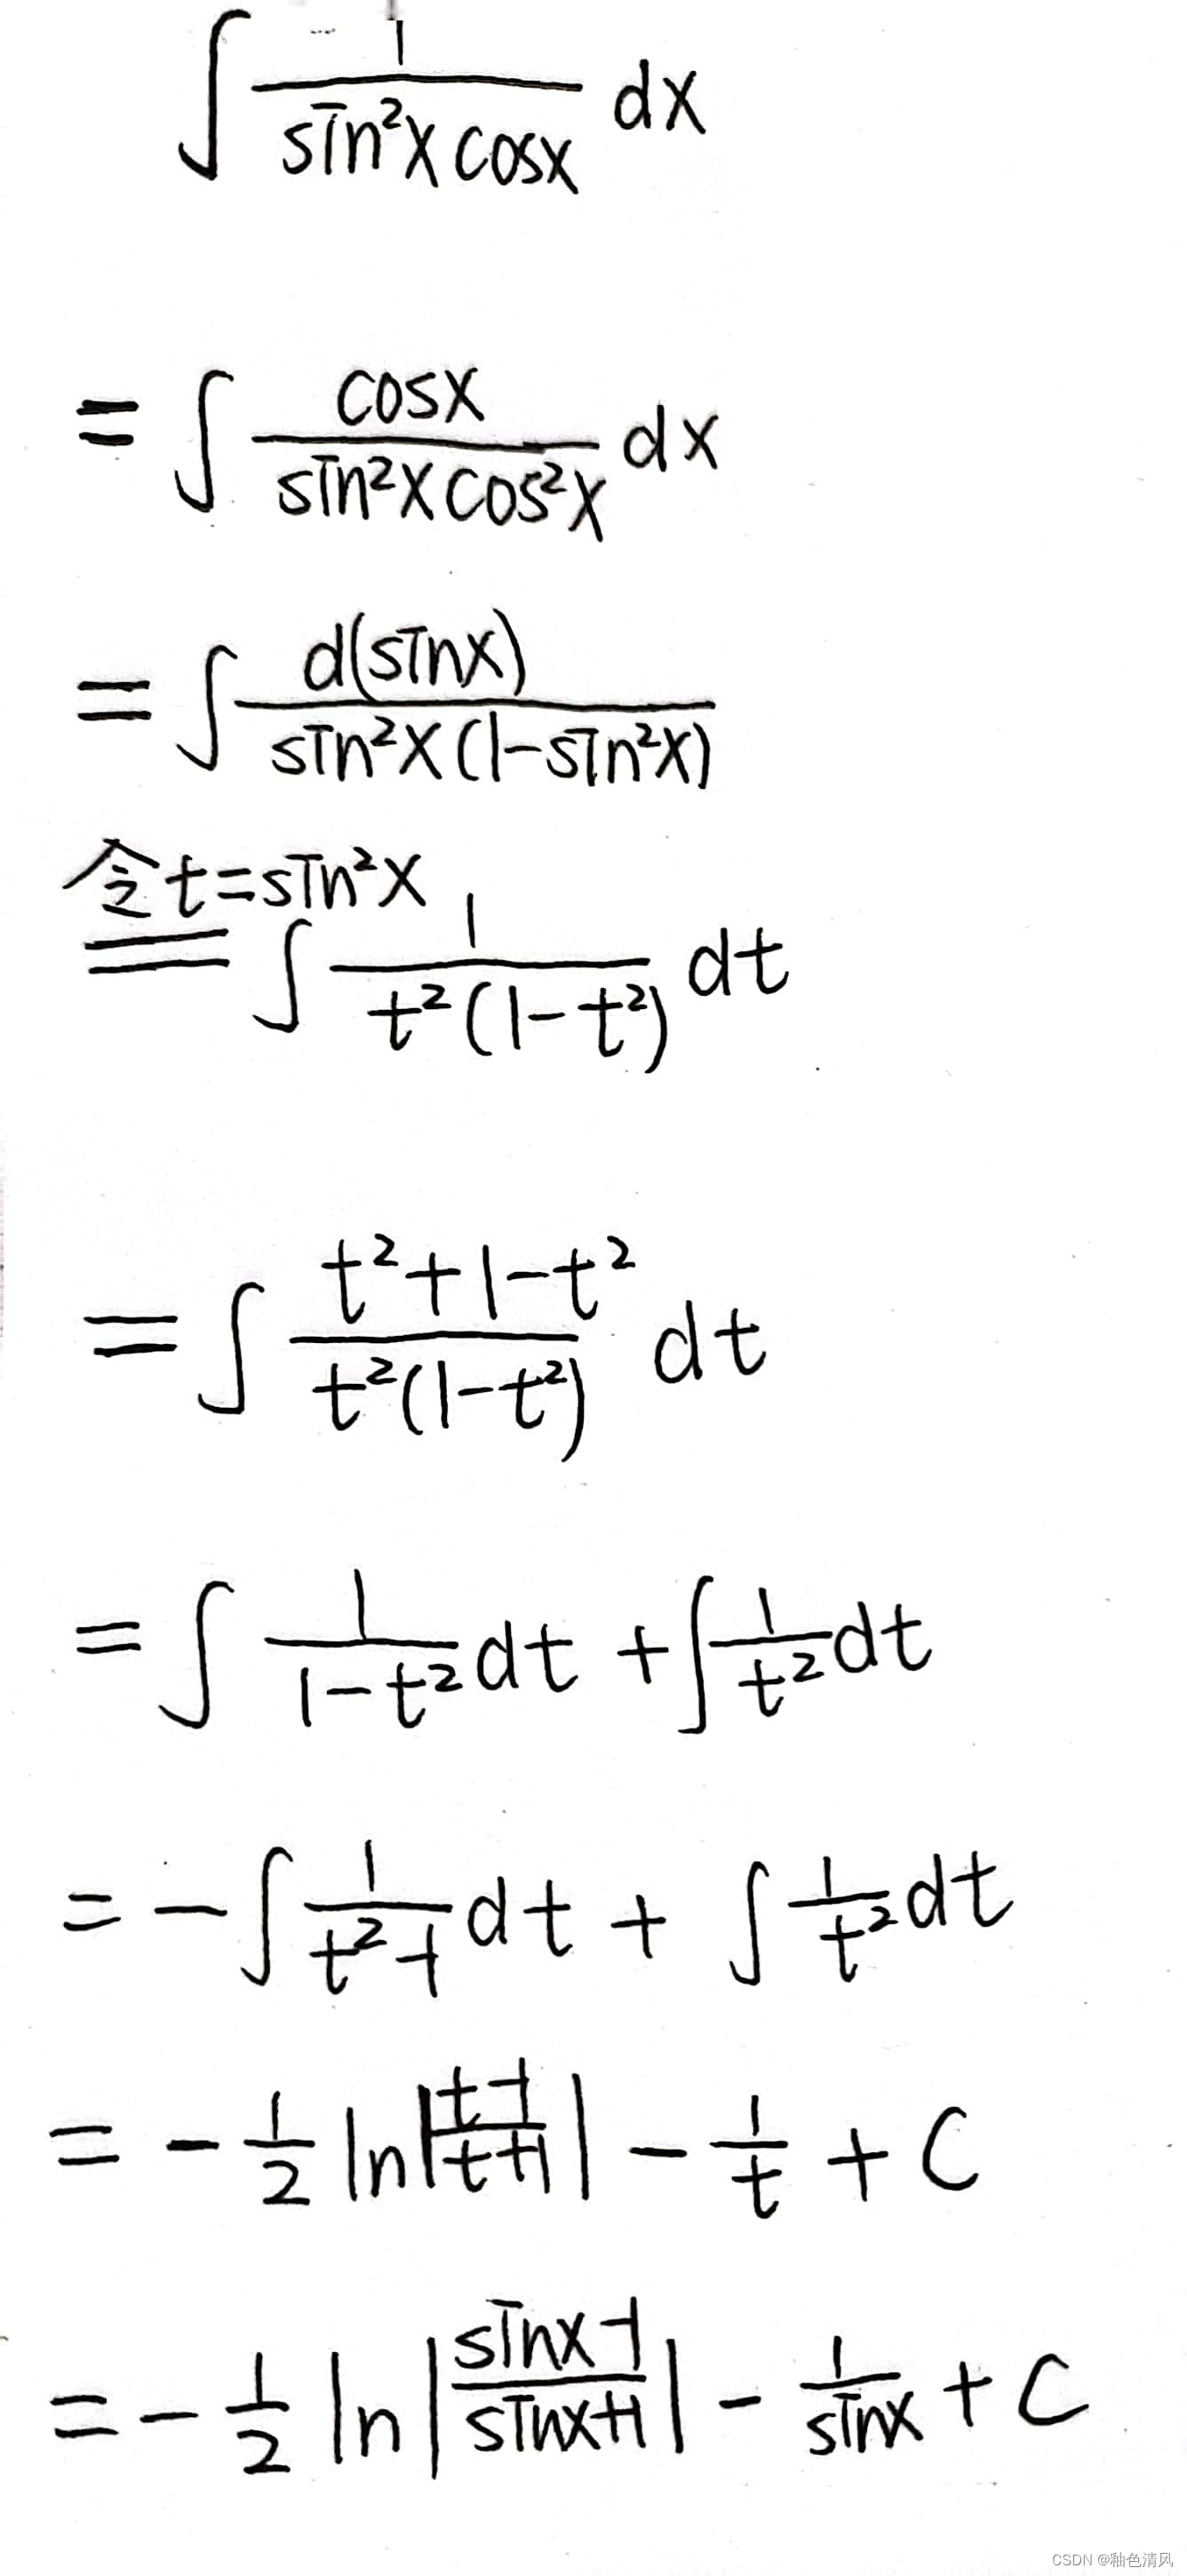 ∫ 1/(sin²x cosx) dx
= ∫ cosx/(sin²x cos²x) dx
= ∫ d(sinx)/(sin²x(1-sin²x))
令t=sin²x
= ∫ 1/(t²(1-t²)) dt
= ∫ (t²+1-t²)/(t²(1-t²)) dt
= ∫ 1/(1-t²) dt + ∫ 1/t² dt
= -∫ 1/(t²-1) dt + ∫ 1/t² dt
= -1/2 ln|(t-1)/(t+1)| - 1/t + C
= -1/2 ln|(sinx-1)/(sinx+1)| - 1/sinx + C
CSDN @釉色清风